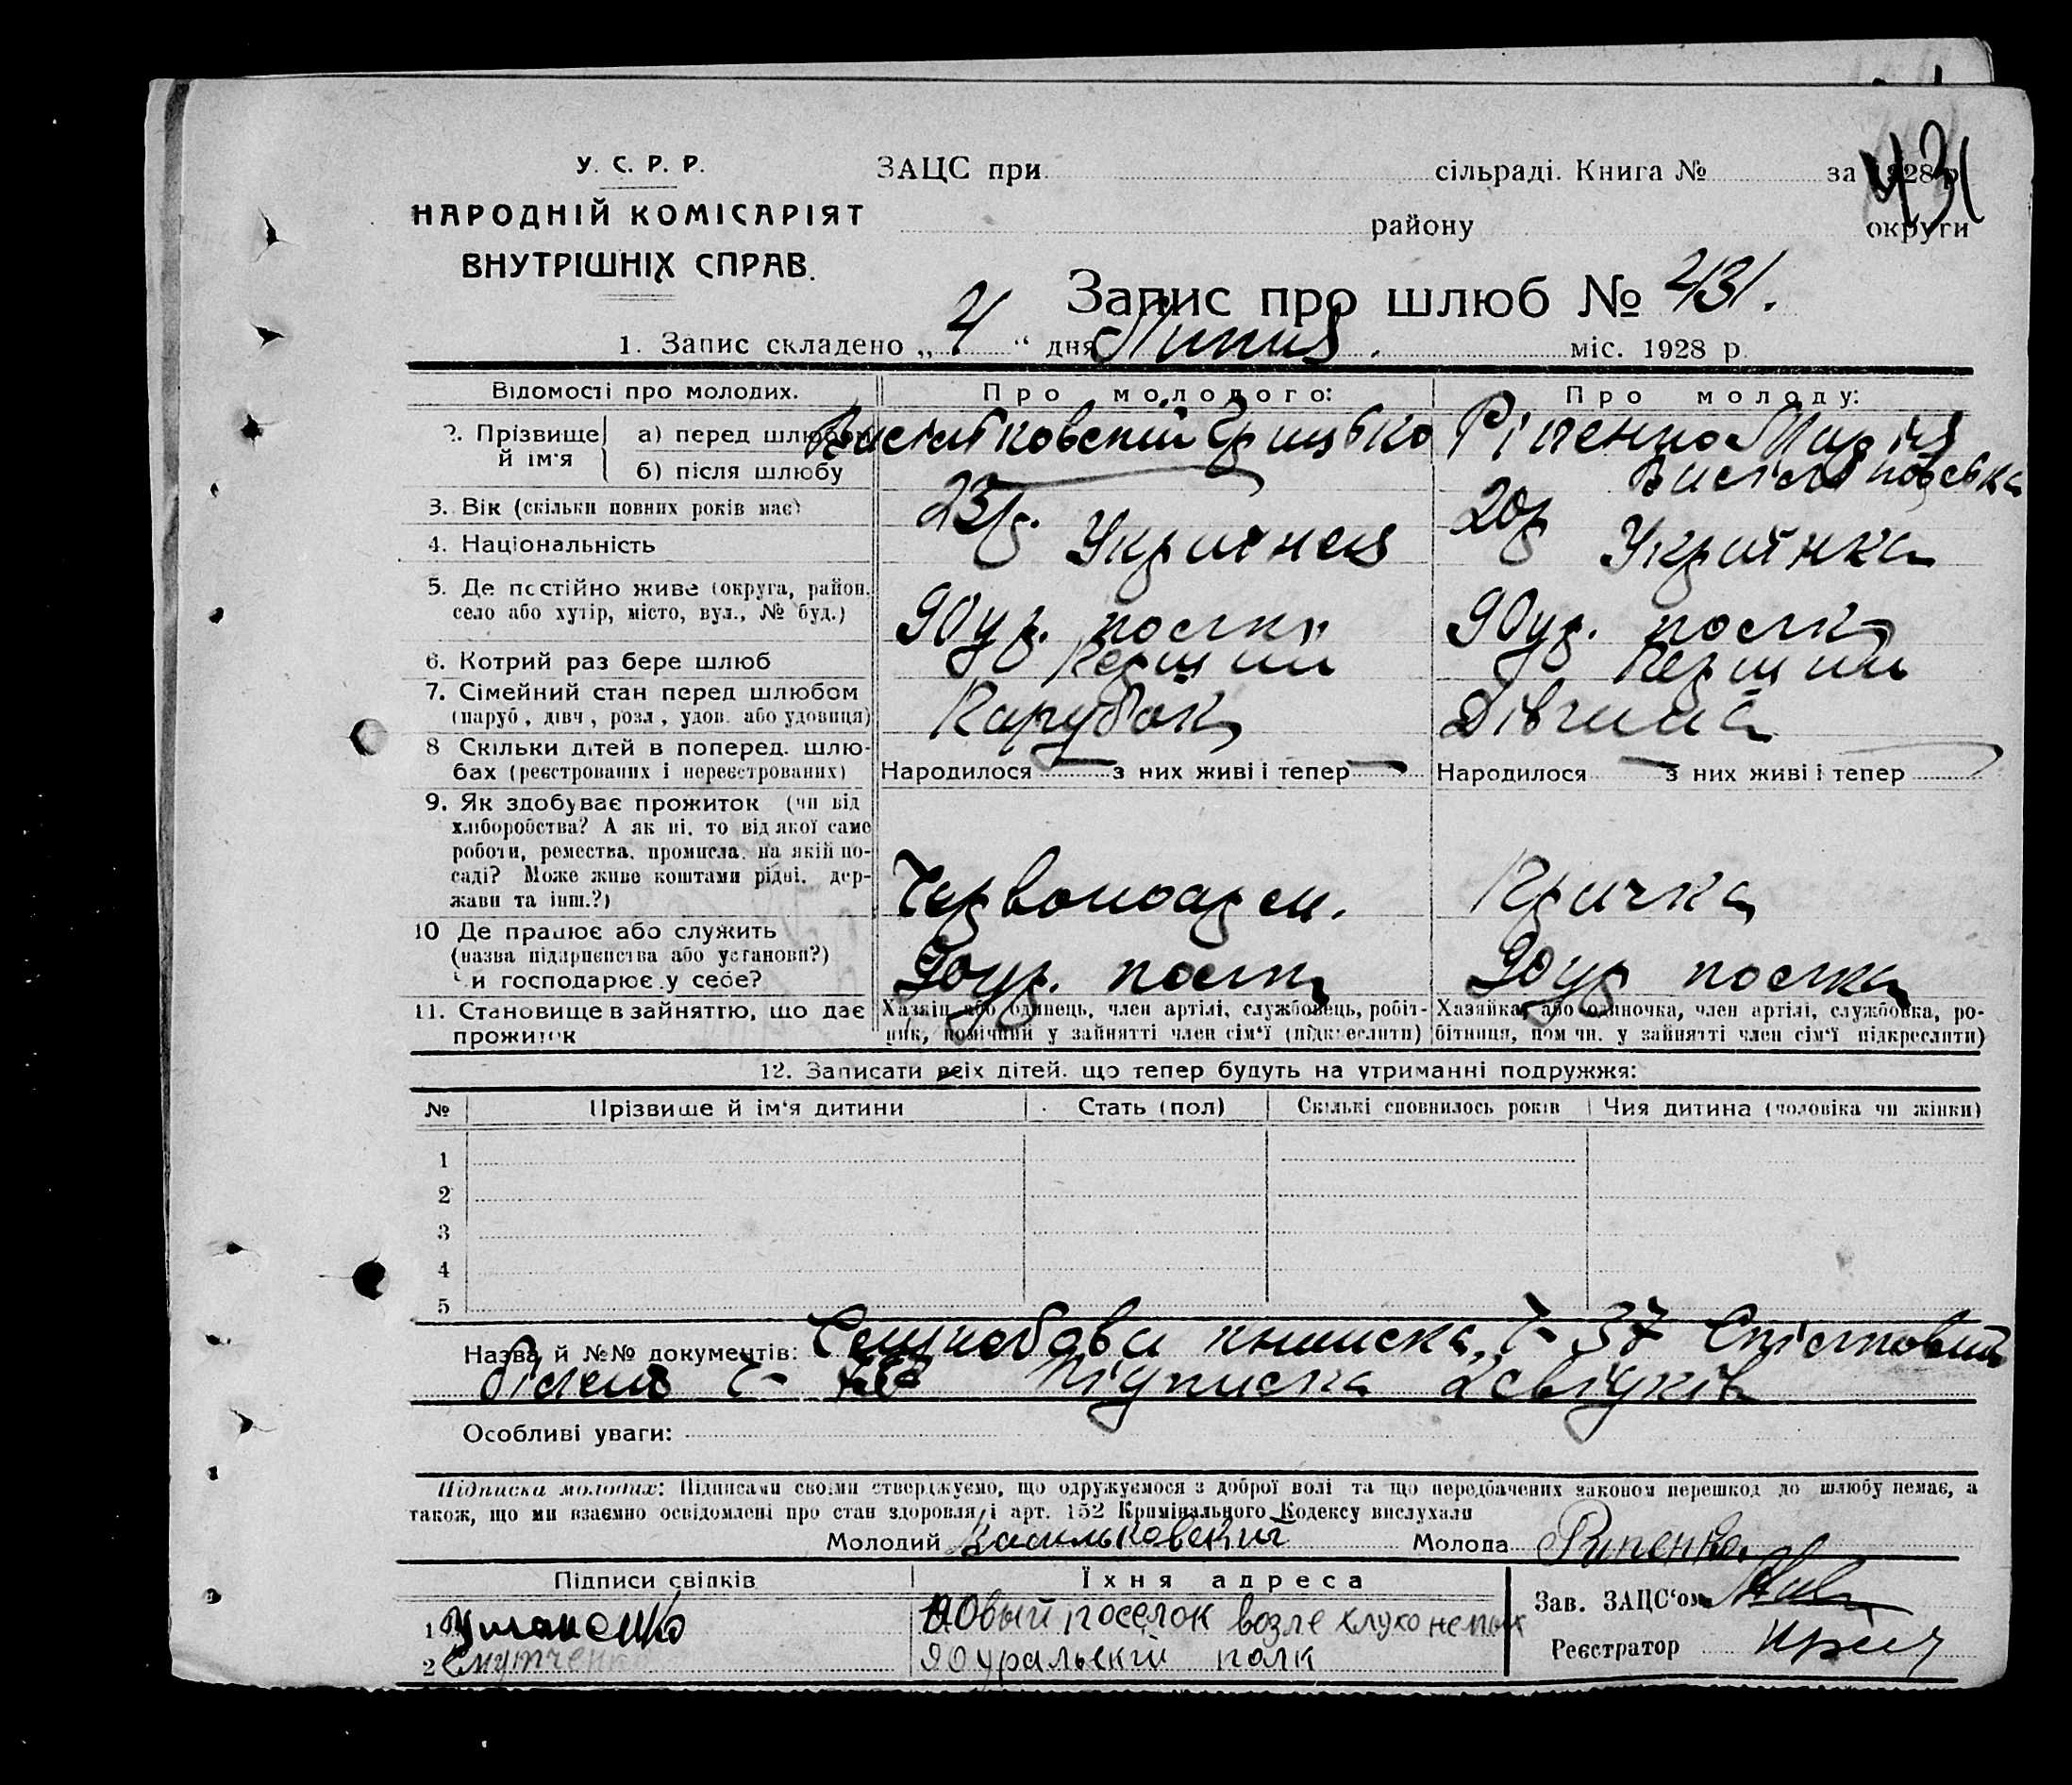 431
У. С. Р. Р.
НАРОДНІЙ КОМІСАРІЯТ
ВНУТРІШНІХ СПРАВ.
ЗАЦС при сільраді. Книга № за 1928 р.
району округи
Запис про шлюб № 431.
1. Запис складено „ 4 “ дня Липня міс. 1928 р.
Відомості про молодих.
Про молодого:
Про молоду:
2. Прізвище й ім'я
а) перед шлюбом
Грицько
Ріпенко Марія
б) після шлюбу
3. Вік (скільки повних років має)
23 р.
20 р
4. Національність
Українець
Українка
5. Де постійно живе (округа, район, село або хутір, місто, вул., № буд.)
90 ур. полк
90 ур. полк
6. Котрий раз бере шлюб
Перший
Перший
7. Сімейний стан перед шлюбом (паруб., дівч., розл., удов. або удовиця)
Парубок
Дівчина
8 Скільки дітей в поперед. шлюбах (реєстрованих і нереєстрованих)
Народилося — з них живі і тепер —
Народилося — з них живі і тепер
9. Як здобуває прожиток (чи від хліборобства? А як ні, то від якої саме роботи, ремества, промисла, на якій посаді? Може живе коштами рідні, держави та інш.?)
Червоноарм.
Прачка
10 Де працює або служить (назва підприємства або установи?) Чи господарює у себе?
90 ур. полк
90 ур полк
11. Становище в зайняттю, що дає прожиток
Хазяїн або одинець, член артілі, службовець, робітник, помічний у зайнятті член сім'ї (підкреслити)
Хазяйка, або одиночка, член артілі, службовка, робітниця, пом чн. у зайнятті член сім'ї підкреслити)
12. Записати всіх дітей, що тепер будуть на утриманні подружжя:
№ Прізвище й ім'я дитини Стать (пол) Скількі сповнилось років Чия дитина (чоловіка чи жінки)
1
2
3
4
5
Назва й №№ документів: книжка, ч- 37
ч- Підписка 2 свідків
Особливі уваги:
Підписка молодих: Підписами своїми стверджуємо, що одружуємося з доброї волі та що передбачених законом перешкод до шлюбу немає, а
також, що ми взаємно освідомлені про стан здоровля, і арт. 152 Кримінального Кодексу вислухали
Молодий Васильковский Молода Рипенко.
Підписи свідків Їхня адреса
1 Новый поселок возле
2 90 уральскій полк
Зав. ЗАЦС'ом
Реєстратор